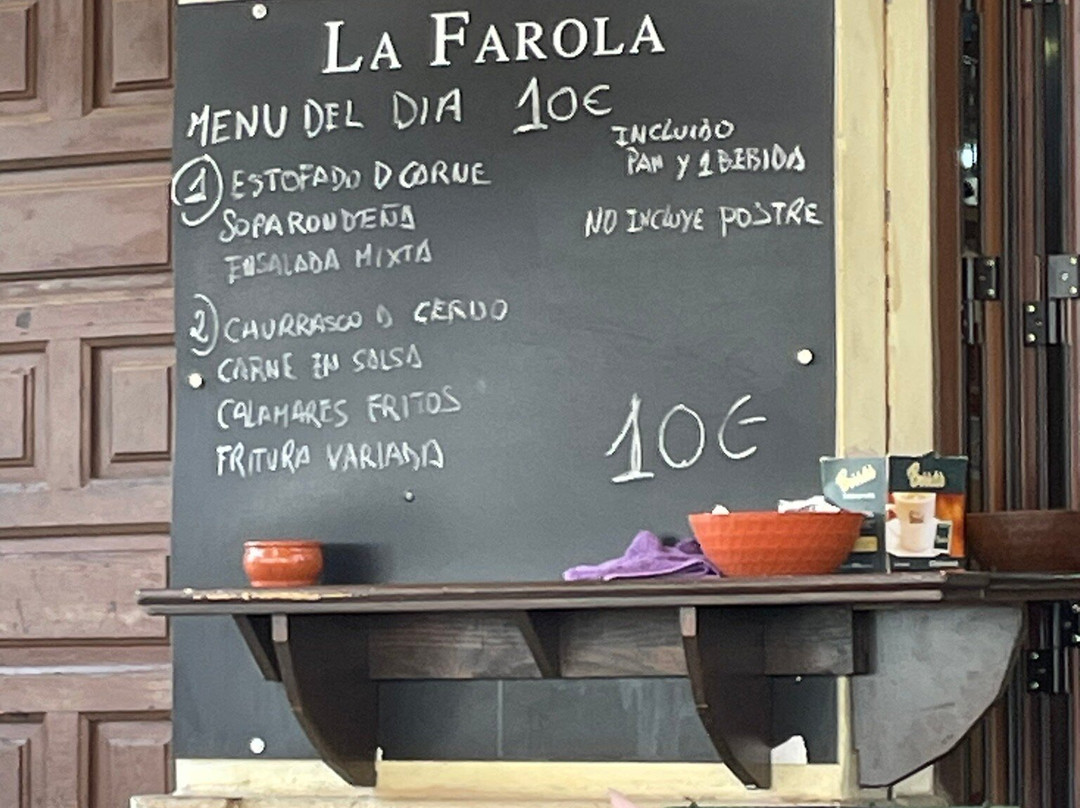 LA FAROLA
MENU DEL DIA 10€
INCLUIDO
PAN Y 1 BEBIDA
NO INCLUYE POSTRE
1 ESTOFADO D CARNE
SOPA RONDEÑA
ENSALADA MIXTA
2 CHURRASCO D CERDO
CARNE EN SALSA
CALAMARES FRITOS
FRITURA VARIADA
10€